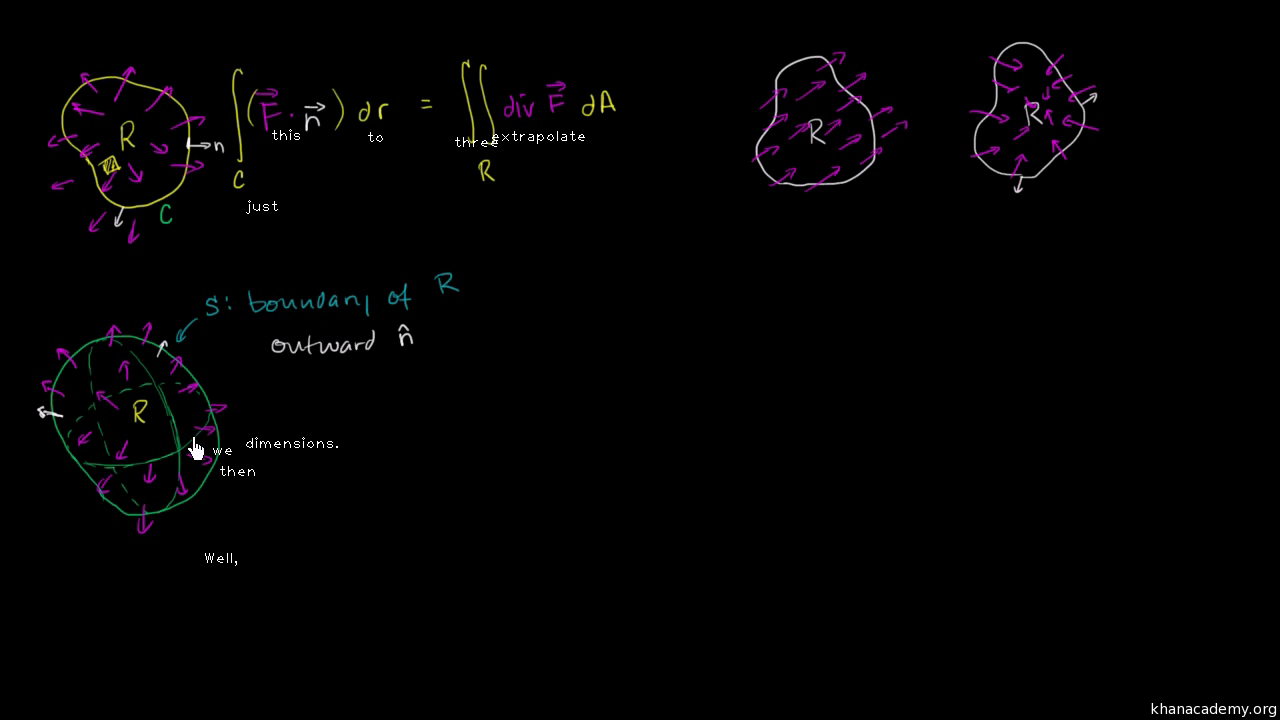 R
n
C
∫_C (F⃗ · n⃗) dr = ∬_R div F⃗ dA
this to three extrapolate
just
R
R
S: boundary of R
outward n̂
R
we dimensions.
then
Well,
khanacademy.org